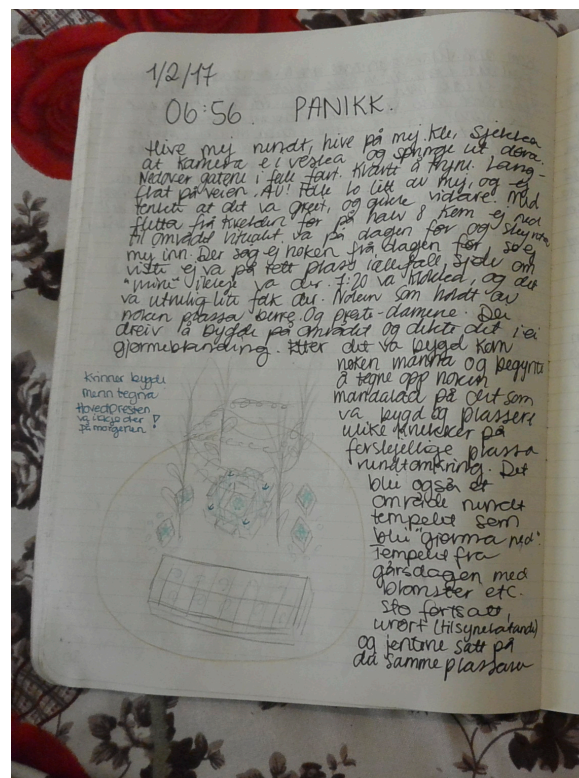 1/2/17
06:56. PANIKK.
Hive mej rundt, hive på mej kle, sjekka
at kamera e i veska og spring ut døra.
Nedover gatene i full fart. Kvartt å tryna. Lang-
flat på veien. AU! Folk lo litt av mej, og ej
tenkte at det va greit, og gjekk vidare. Med
flytta frå kvelden før på halv 8 kom ej ned
til området ritualet va på dagen før og skeynte
mej inn. Der såg ej noken frå dagen før, så ej
visste ej va på rett plass iallefall, sjølv om
"mine" ikkje va der. 7:20 va klokka, og det
va utrulig lite folk der. Noken som holdt av
noken plassa berre. Og prest-damene. Dei
dreiv å bygde på området og dekte det i ei
gjørmeblanding. Etter det va bygd kom
noken manna og begynte
å tegne opp noken
mandalaer på det som
va bygd og plassere
ulike knekker på
forskjellige plassa
rundtomkring. Det
blei også et
område rundt
tempelet som
blei "gjørma ned".
Tempelet fra
gårsdagen med
blomster etc.
sto fortsatt
urørt (tilsynelatande)
og jentene satt på
dei samme plassane
Kvinner bygde
menn tegna
Hovedpresten
va ikkje der
på morgenen!